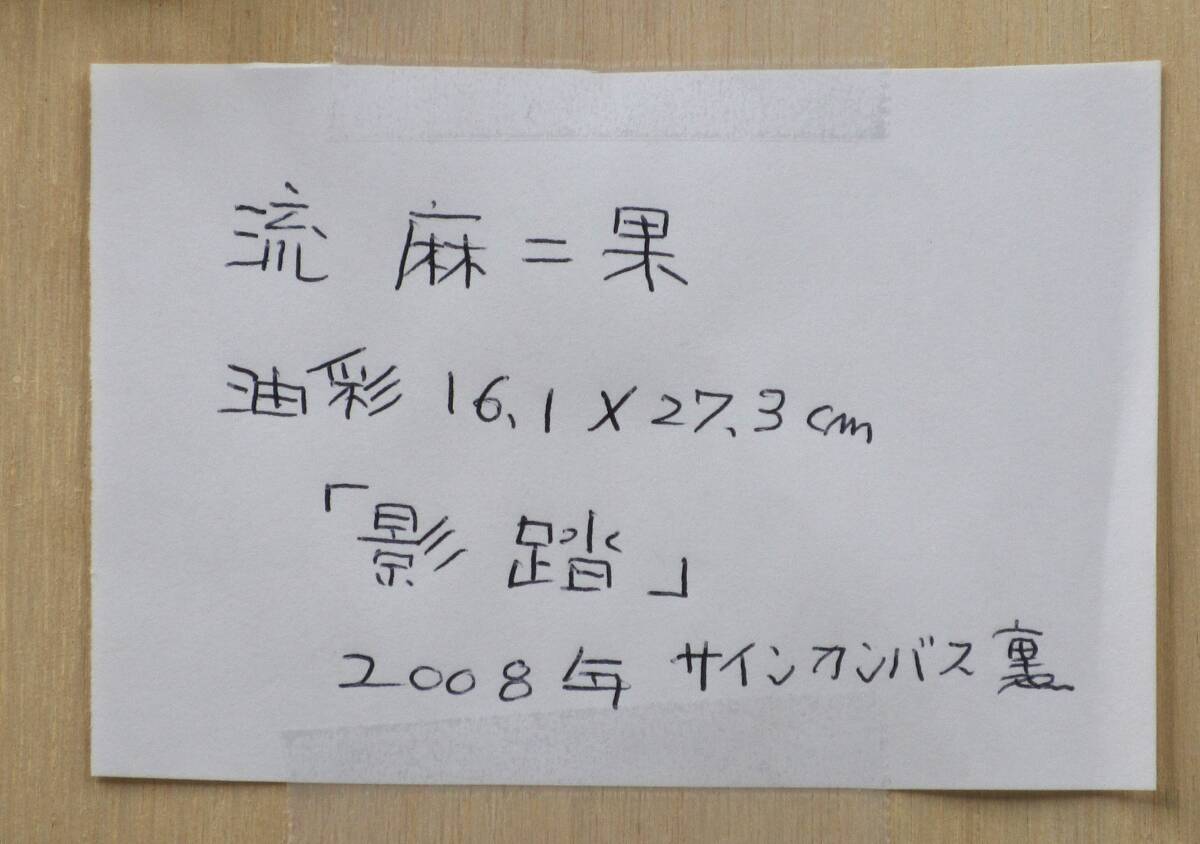 流 麻二果
油彩 16.1×27.3cm
「影踏」
2008年 サインカンバス裏